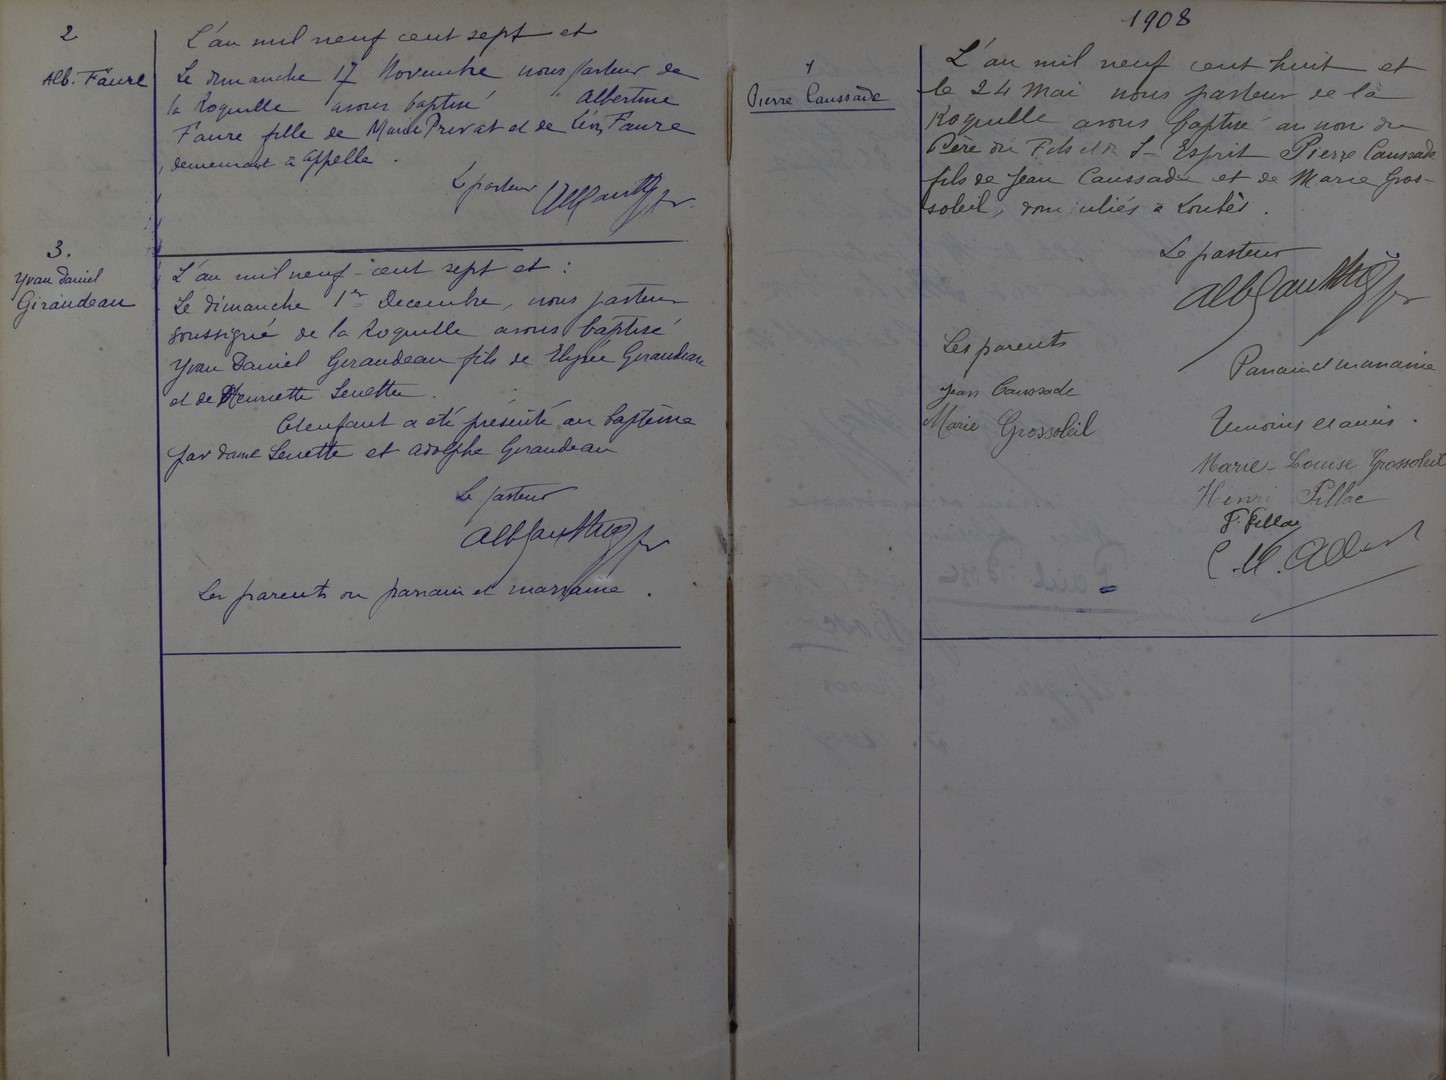 2
Alb. Faure
L'an mil neuf cent sept et
Le dimanche 17 Novembre nous pasteur de
la Roquille avons baptisé Albertine
Faure fille de Marie Privat et de Léon Faure
demeurant à Appelle.
Le pasteur
3.
Yvan Daniel
Giraudeau
L'an mil neuf-cent sept et :
Le dimanche 1er Decembre, nous pasteur
soussigné de la Roquille avons baptisé
Yvan Daniel Geraudeau fils de Elysée Geraudeau
et de Henriette Senette.
Cet enfant a été présenté au baptême
par dame Senette et adolphe Geraudeau
Le pasteur
Les parents ou parrain et marraine.
1908
1
Pierre Caussade
L'an mil neuf cent huit et
le 24 Mai nous pasteur de la
Roquille avons baptisé au nom du
Père du Fils et du St Esprit Pierre Caussade
fils de Jean Caussade et de Marie Gros-
soleil, domiciliés à
Le pasteur
Les parents
Parrain et marraine
Jean Caussade
Marie Grossoleil
Témoins et amis.
Marie-Louise Grossoleil
Henri Pillac